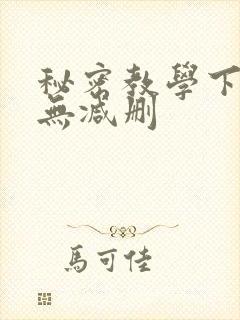 秘密教學下
無减删
馬可佳